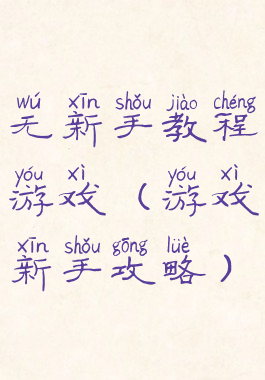 wú xīn shǒu jiào chéng
无新手教程
yóu xì yóu xì
游戏（游戏
xīn shǒu gōng lüè
新手攻略）